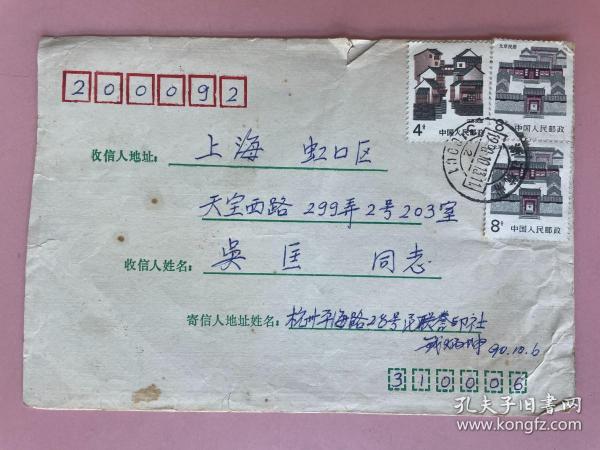 200092
收信人地址：上海 虹口区
天宝西路 299弄2号203室
收信人姓名：吴 匡 同志
寄信人地址姓名：杭州平海路28号
90.10.6
310006
4分
中国人民邮政
北京民居
8
中国人民邮政
8分
中国人民邮政
孔夫子旧书网
www.kongfz.com